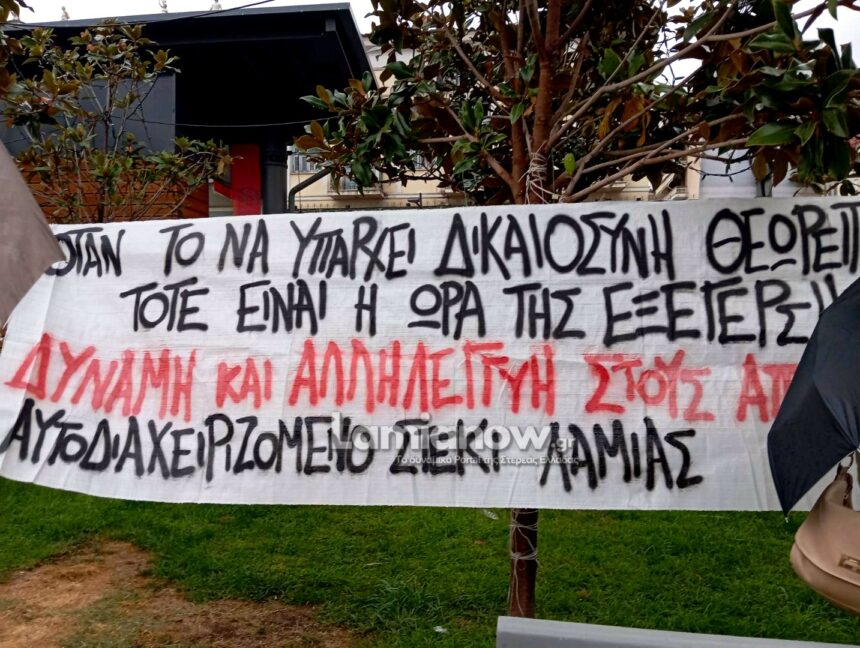 ΌΤΑΝ ΤΟ ΝΑ ΥΠΑΡΧΕΙ ΔΙΚΑΙΟΣΥΝΗ ΘΕΩΡΕΙΤ
ΤΟΤΕ ΕΙΝΑΙ Η ΩΡΑ ΤΗΣ ΕΞΕΓΕΡΣΗ
ΔΥΝΑΜΗ ΚΑΙ ΑΛΛΗΛΕΓΓΥΗ ΣΤΟΥΣ ΑΠ
ΑΥΤΟΔΙΑΧΕΙΡΙΖΟΜΕΝΟ ΣΤΕΚΙ ΛΑΜΙΑΣ
Lamianow.gr
Το δυναμικό Portal της Στερεάς Ελλάδας